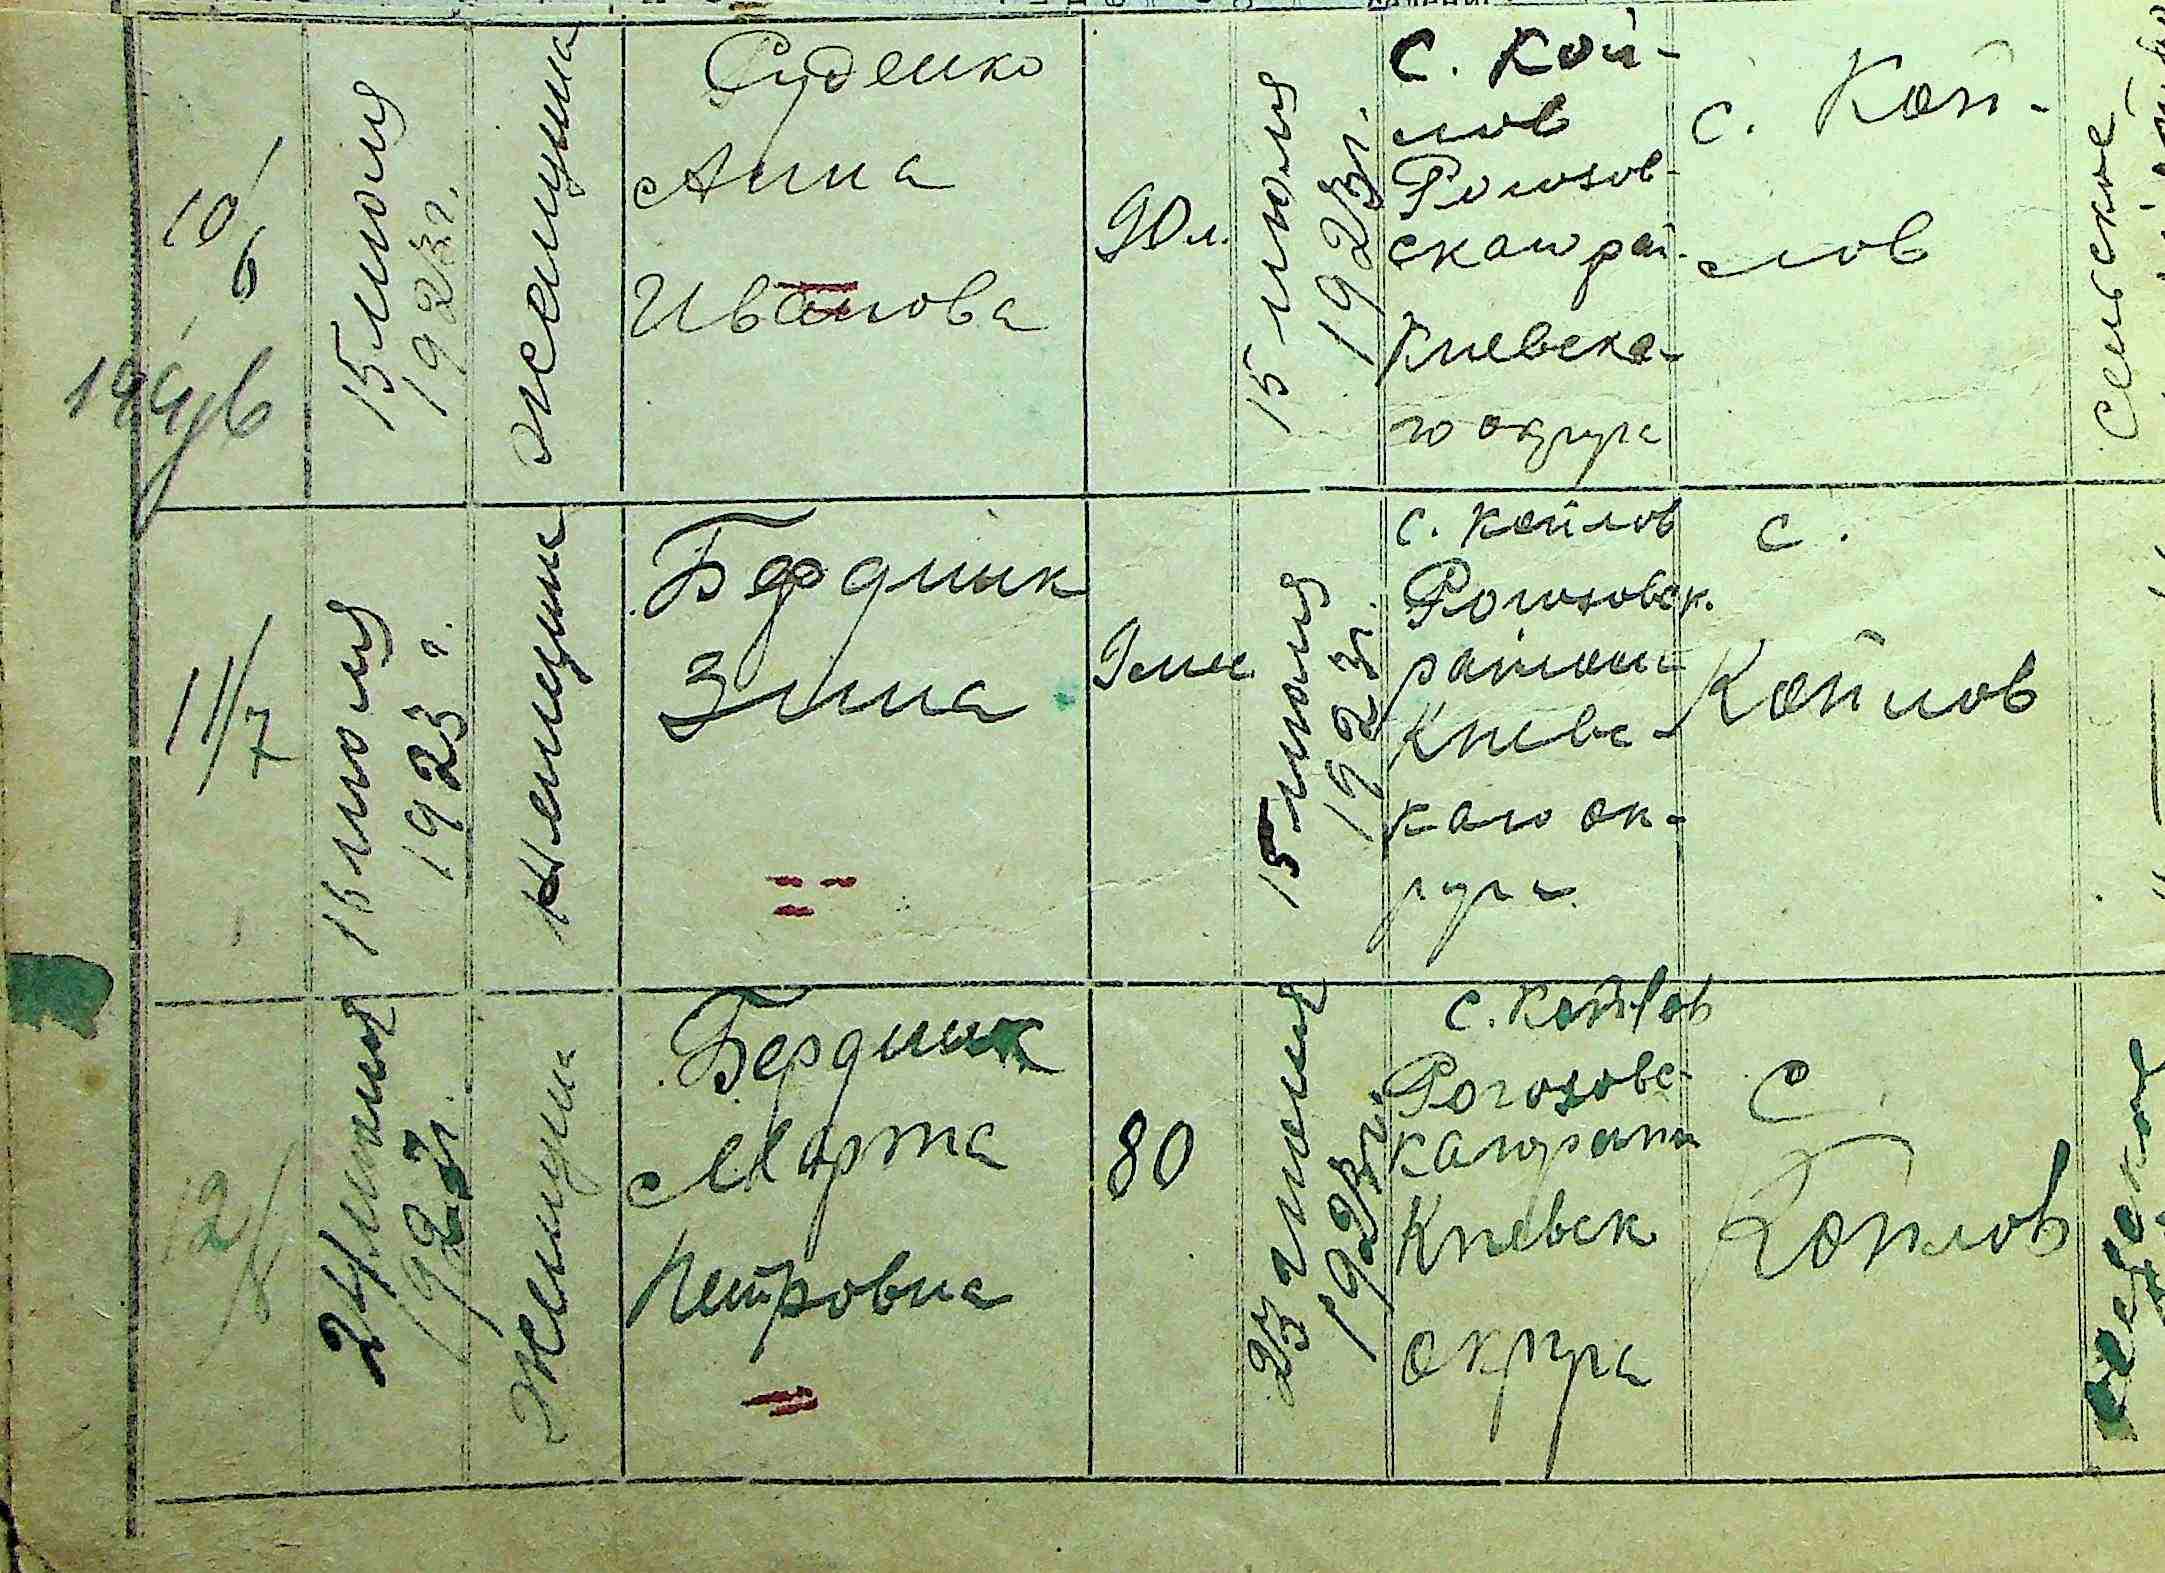 10/6
15 июля
1923 г.
женщина
Руденко
Анна
Иванова
90 л.
15 июля
1923 г.
с. Кой-
лов
Рогозов-
скаго рай.
Киевска-
го округа
с. Кой-
лов
Сельское
11/7
16 июля
1923 г.
женщина
Бердник
Зина
9 мес
15 июля
1923 г.
с. Койлов
Рогозовск.
района
Киевс-
каго ок-
руга
с.
Койлов
12/8
24 июля
1923 г.
Женщина
Бердник
Марта
Петровна
80
23 июля
1923 г.
с. Койлов
Рогозовс-
каго район
Киевск
округа
С.
Койлов